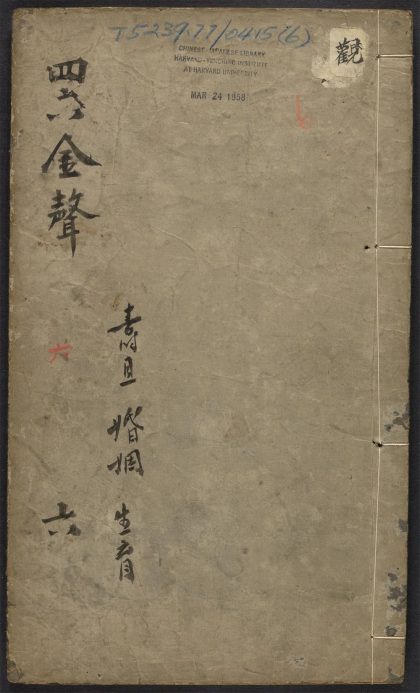 T5239.77/0415(6)
CHINESE-JAPANESE LIBRARY
HARVARD-YENCHING INSTITUTE
AT HARVARD UNIVERSITY
MAR 24 1958
觀
壽旦 婚姻 生育
四六金聲
六
六